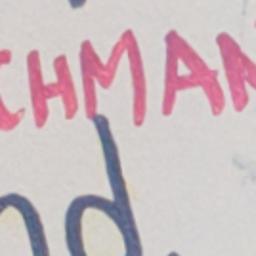 CHMAN
nd